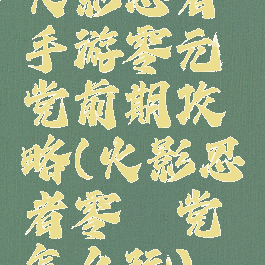 火影忍者
手游零元
党前期攻
略(火影忍
者零 党
怎么玩)